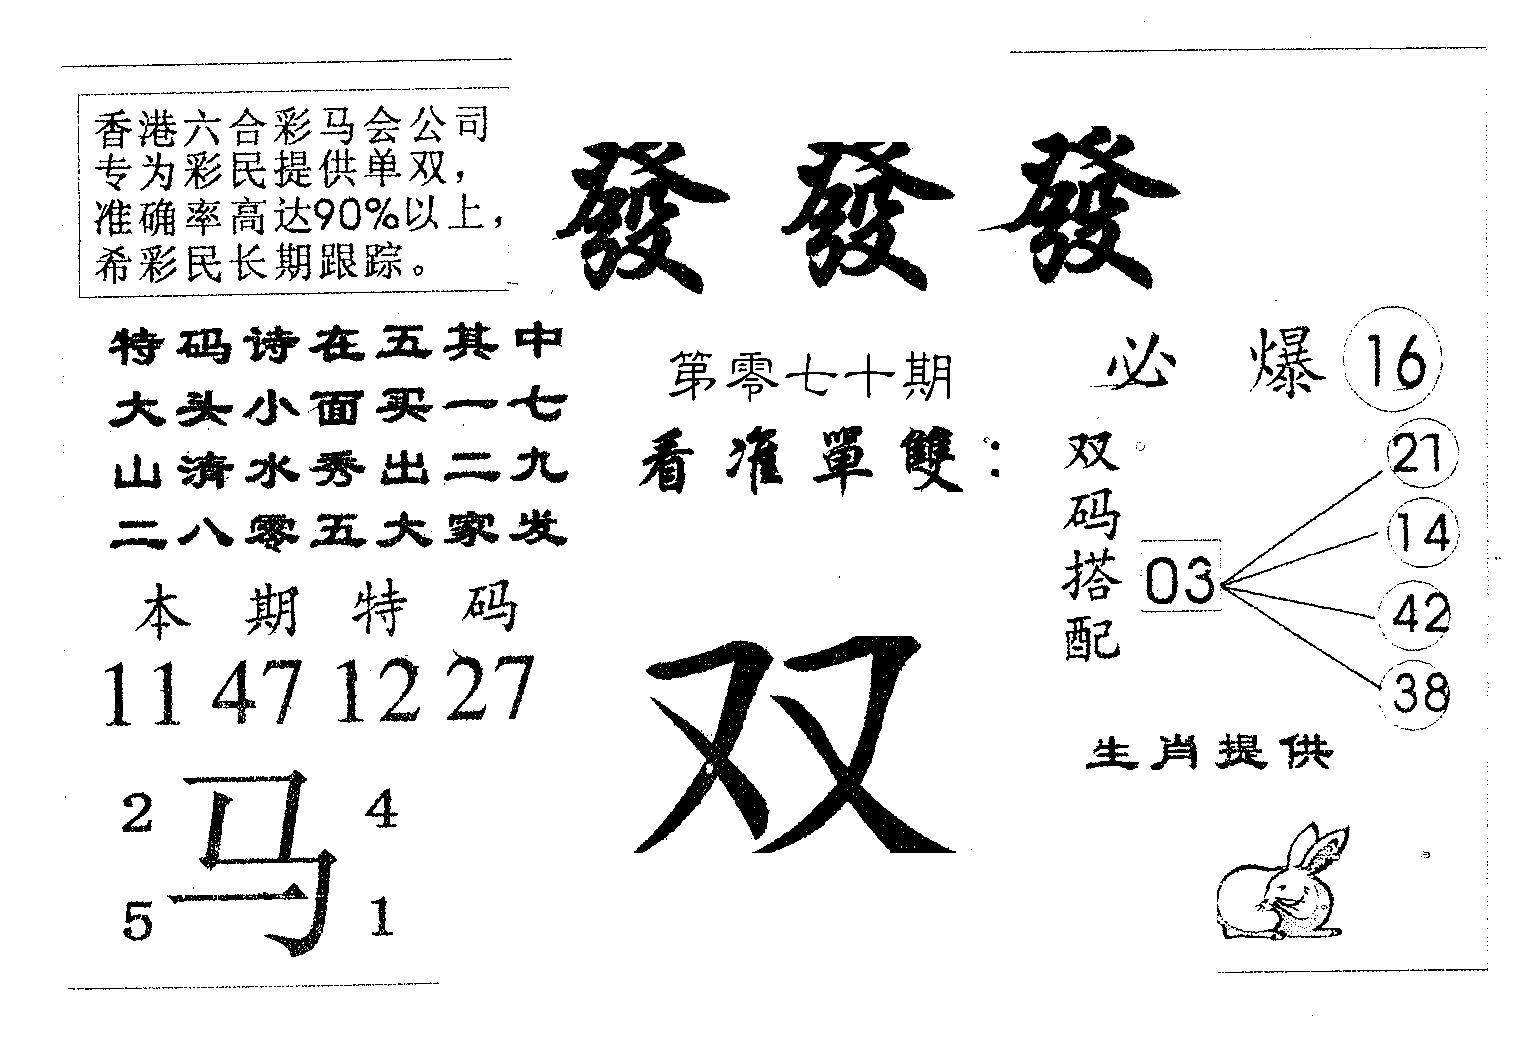 香港六合彩马会公司
专为彩民提供单双，
准确率高达90%以上，
希彩民长期跟踪。
發發發
特码诗在五其中
大头小面买一七
山清水秀出二九
二八零五大家发
本期特码
11 47 12 27
2 马 4
5 1
第零七十期
看准單雙：
双
必爆 16
双码搭配
03
21
14
42
38
生肖提供